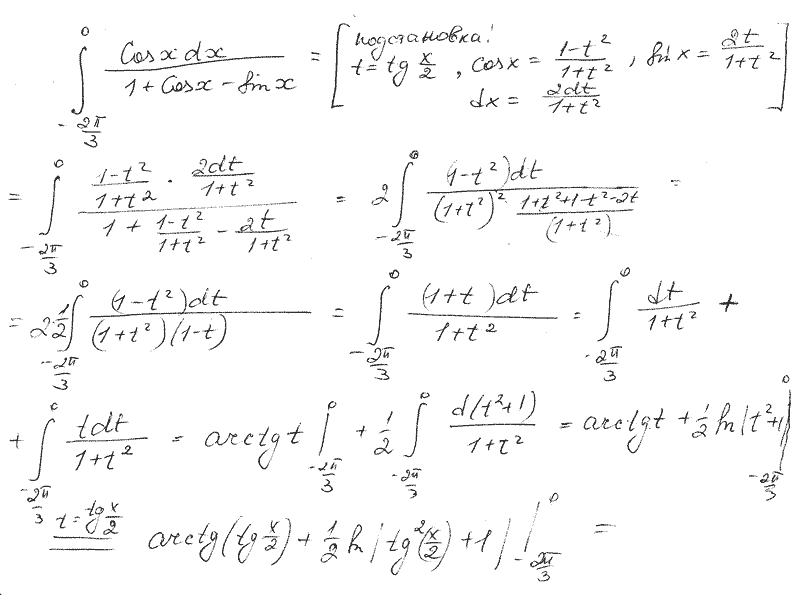 ∫_{-2π/3}^{0} (Cosx dx)/(1+Cosx-Sinx) = [подстановка! t=tg x/2, cosx = (1-t²)/(1+t²), sinx = 2t/(1+t²) dx = 2dt/(1+t²)]
= ∫_{-2π/3}^{0} ((1-t²)/(1+t²) · 2dt/(1+t²))/(1 + (1-t²)/(1+t²) - 2t/(1+t²)) = 2∫_{-2π/3}^{0} ((1-t²)dt)/((1+t²)² (1+t²+1-t²-2t)/(1+t²)) =
= 2·1/2 ∫_{-2π/3}^{0} ((1-t²)dt)/((1+t²)(1-t)) = ∫_{-2π/3}^{0} ((1+t)dt)/(1+t²) = ∫_{-2π/3}^{0} dt/(1+t²) +
+ ∫_{-2π/3}^{0} tdt/(1+t²) = arctgt |_{-2π/3}^{0} + 1/2 ∫_{-2π/3}^{0} d(t²+1)/(1+t²) = arctgt + 1/2 ln|t²+1| |_{-2π/3}^{0}
t=tg x/2 arctg(tg x/2) + 1/2 ln|tg²(x/2)+1| |_{-2π/3}^{0} =